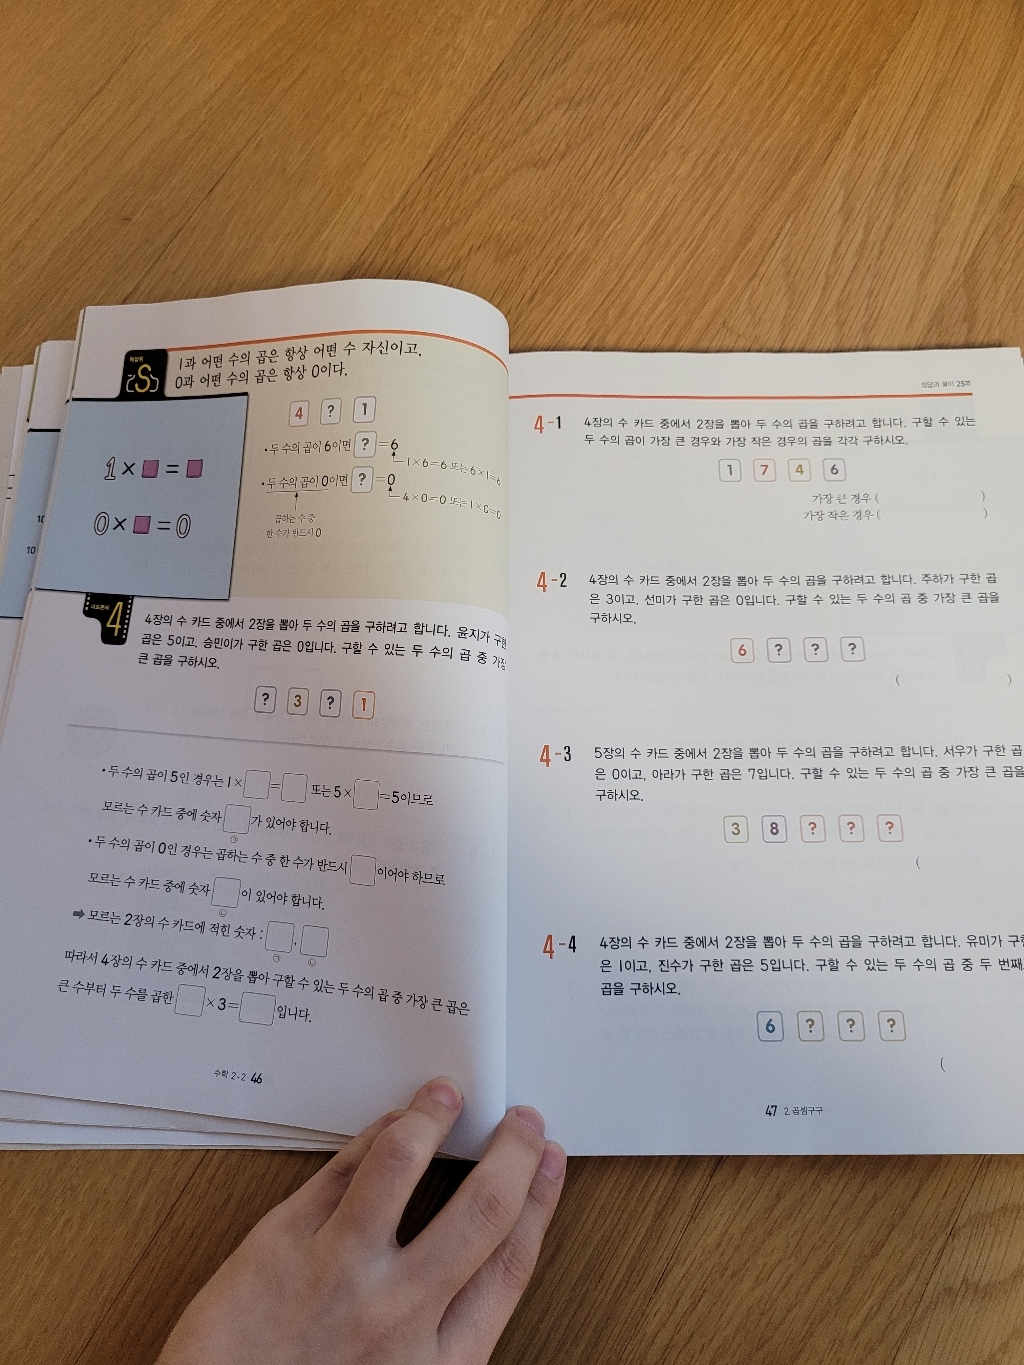 최상위
S
1과 어떤 수의 곱은 항상 어떤 수 자신이고,
0과 어떤 수의 곱은 항상 0이다.
1 × ■ = ■
0 × ■ = 0
4 ? 1
• 두 수의 곱이 6이면 ? = 6
1×6=6 또는 6×1=6
• 두 수의 곱이 0이면 ? = 0
4×0=0 또는 1×0=0
곱하는 수 중
한 수가 반드시 0
10
10
대표문제 4
4장의 수 카드 중에서 2장을 뽑아 두 수의 곱을 구하려고 합니다. 윤지가 구한
곱은 5이고, 승민이가 구한 곱은 0입니다. 구할 수 있는 두 수의 곱 중 가장
큰 곱을 구하시오.
? 3 ? 1
• 두 수의 곱이 5인 경우는 1×□=□ 또는 5×□=5이므로
모르는 수 카드 중에 숫자 □가 있어야 합니다.
㉠
• 두 수의 곱이 0인 경우는 곱하는 수 중 한 수가 반드시 □이어야 하므로
모르는 수 카드 중에 숫자 □이 있어야 합니다.
㉡
➡ 모르는 2장의 수 카드에 적힌 숫자 : □, □
㉠ ㉡
따라서 4장의 수 카드 중에서 2장을 뽑아 구할 수 있는 두 수의 곱 중 가장 큰 곱은
큰 수부터 두 수를 곱한 □×3=□입니다.
수학 2-2 46
정답과 풀이 25쪽
4-1 4장의 수 카드 중에서 2장을 뽑아 두 수의 곱을 구하려고 합니다. 구할 수 있는
두 수의 곱이 가장 큰 경우와 가장 작은 경우의 곱을 각각 구하시오.
1 7 4 6
가장 큰 경우 ( )
가장 작은 경우 ( )
4-2 4장의 수 카드 중에서 2장을 뽑아 두 수의 곱을 구하려고 합니다. 주하가 구한 곱
은 3이고, 선미가 구한 곱은 0입니다. 구할 수 있는 두 수의 곱 중 가장 큰 곱을
구하시오.
6 ? ? ?
( )
4-3 5장의 수 카드 중에서 2장을 뽑아 두 수의 곱을 구하려고 합니다. 서우가 구한 곱
은 0이고, 아라가 구한 곱은 7입니다. 구할 수 있는 두 수의 곱 중 가장 큰 곱을
구하시오.
3 8 ? ? ?
(
4-4 4장의 수 카드 중에서 2장을 뽑아 두 수의 곱을 구하려고 합니다. 유미가 구한
은 1이고, 진수가 구한 곱은 5입니다. 구할 수 있는 두 수의 곱 중 두 번째
곱을 구하시오.
6 ? ? ?
(
47 2. 곱셈구구